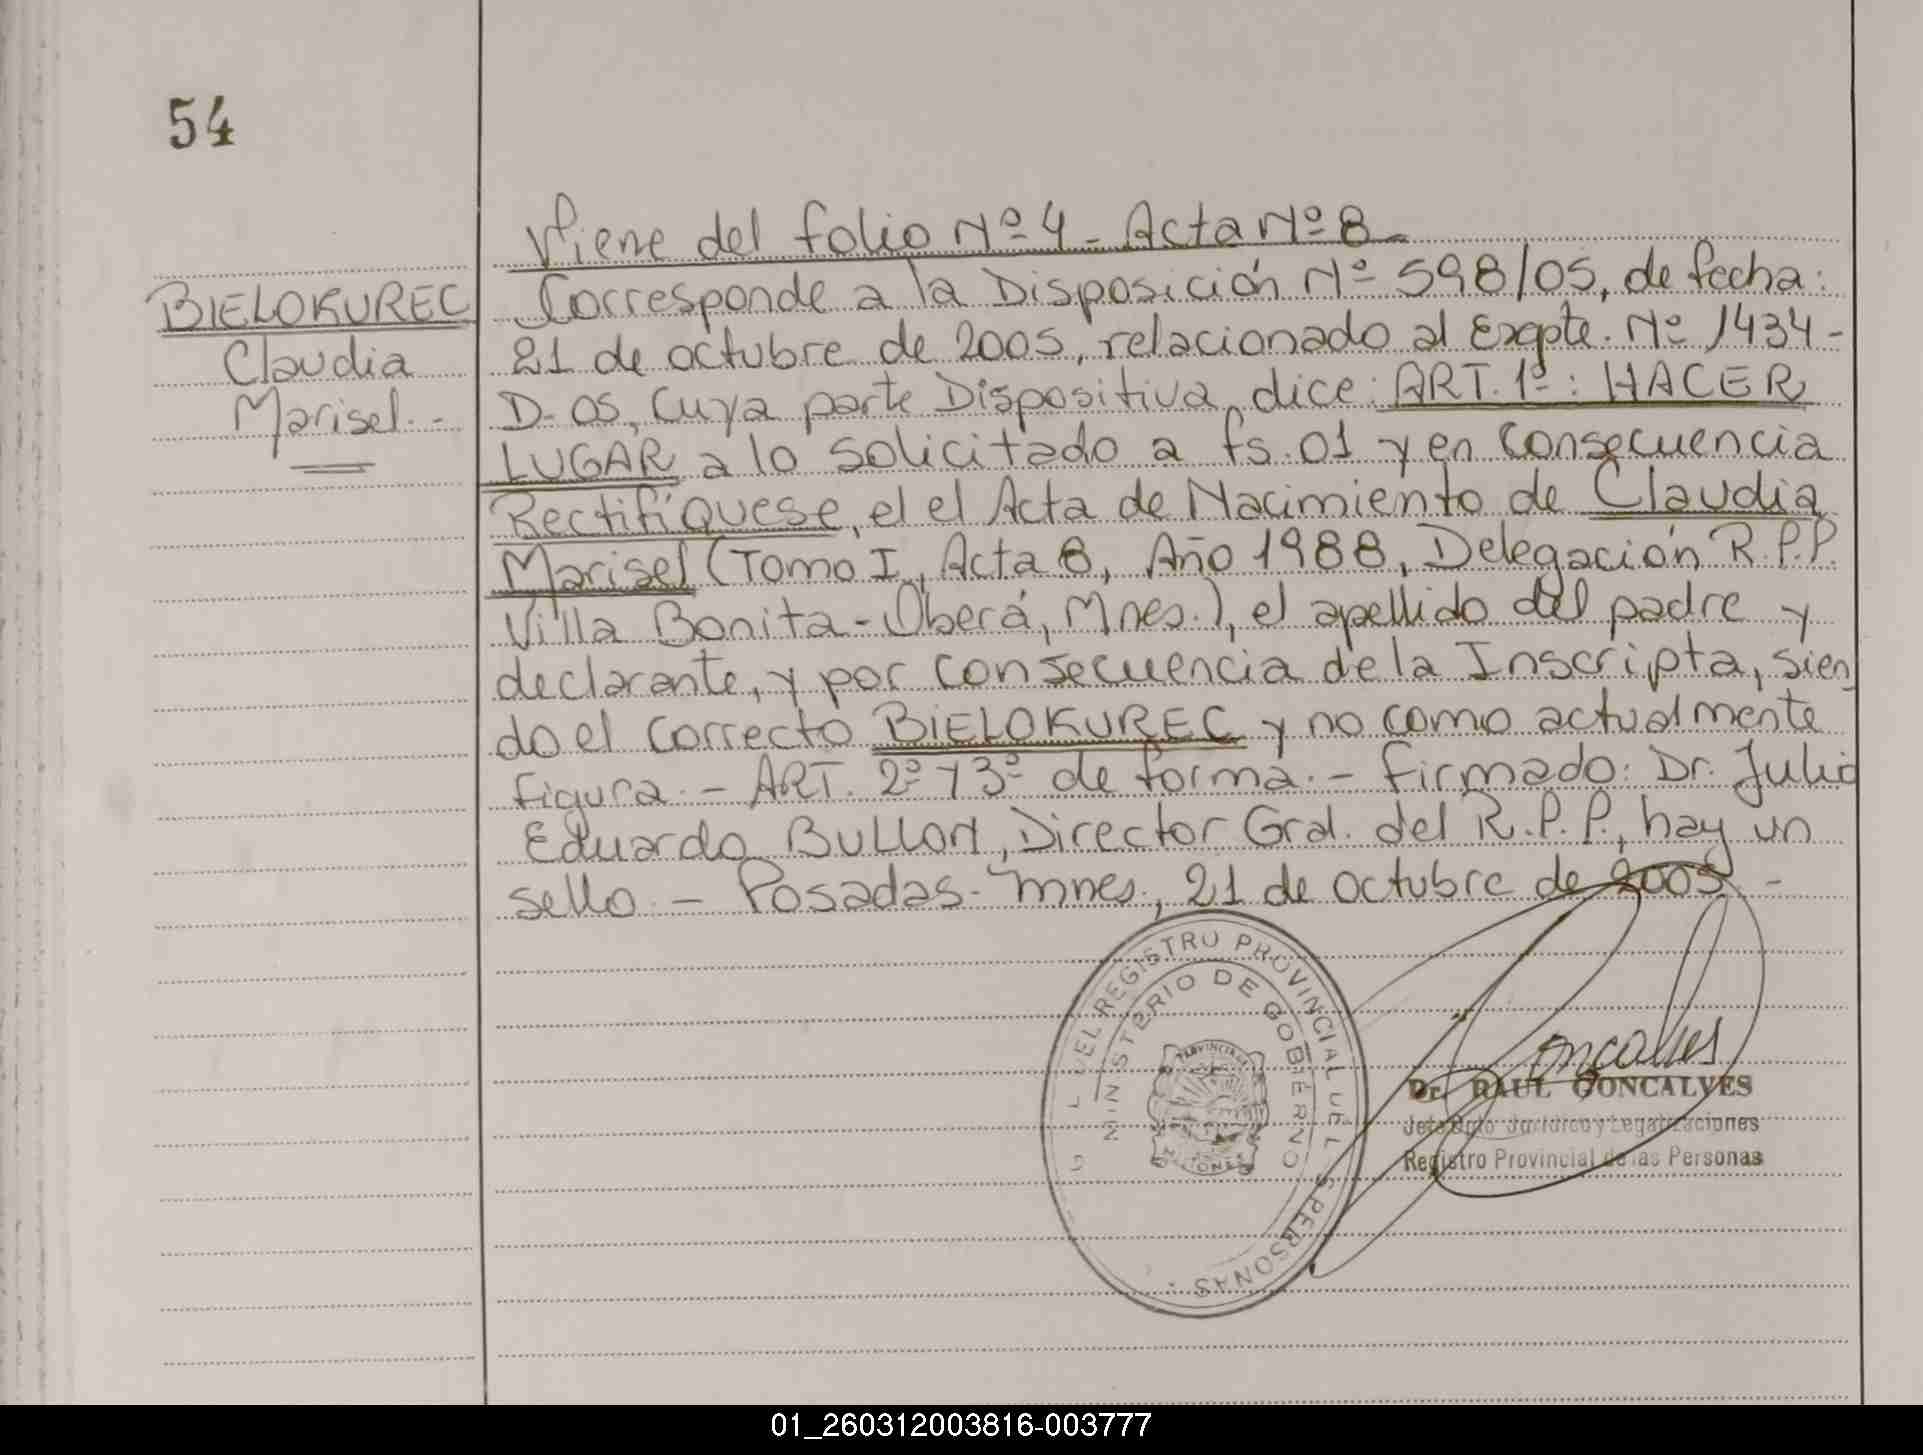 54
BIELOKUREC
Claudia
Marisel.-
Viene del folio Nº 4 - Acta Nº 8
Corresponde a la Disposición Nº 598/05, de fecha:
21 de octubre de 2005, relacionado al Expte. Nº 1434-
D-05, cuya parte Dispositiva, dice: ART. 1º: HACER
LUGAR a lo solicitado a fs. 01 y en consecuencia
Rectifíquese, el el Acta de Nacimiento de Claudia
Marisel (Tomo I, Acta 8, Año 1988, Delegación R.P.P.
Villa Bonita - Oberá, Mnes.), el apellido del padre y
declarante, y por consecuencia de la Inscripta, sien
do el correcto BIELOKUREC y no como actualmente
figura.- ART. 2º y 3º de forma.- Firmado: Dr. Julio
Eduardo BULLON, Director Gral. del R.P.P., hay un
sello.- Posadas - Mnes., 21 de octubre de 2005.-
DEL REGISTRO PROVINCIAL DE L S PERSONAS
MINISTERIO DE GOBIERNO
PROVINCIA
MISIONES
Goncalves
Dr. RAUL GONCALVES
Jefe Dpto Jurídico y Legalizaciones
Registro Provincial de las Personas
01_260312003816-003777